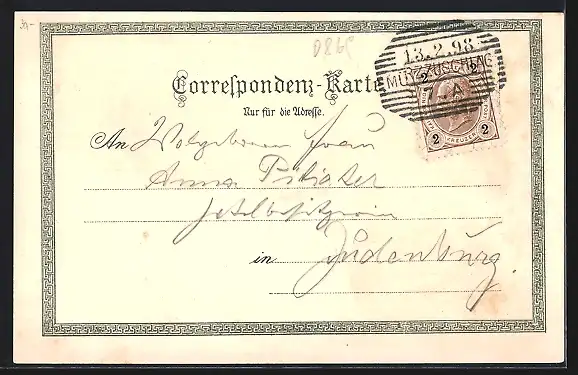 13.2.98
MÜRZZUSCHLAG
2 2
KREUZER
2 2
Correspondenz-Karte
Nur für die Adresse.
An Wolgeboren Frau
Anna
Hotelbesitzerin
in Judenburg